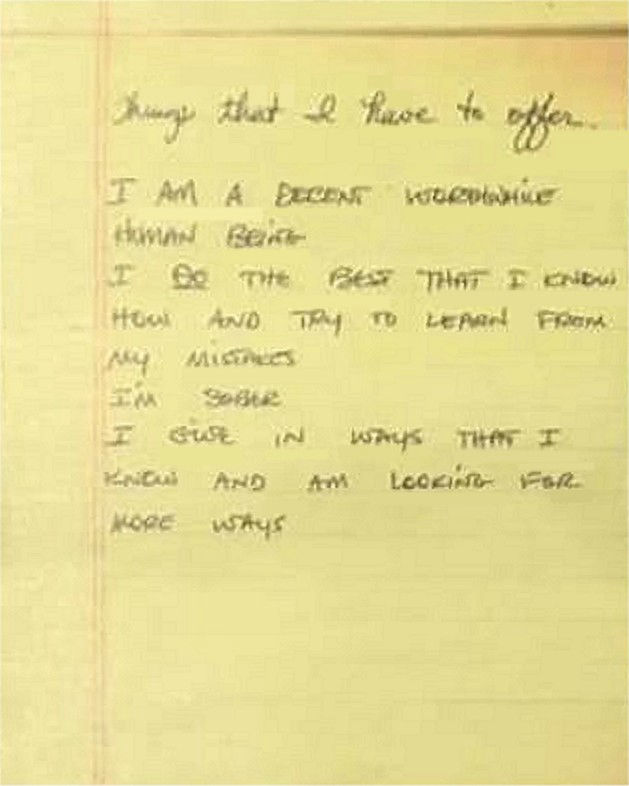 Things that I have to offer.
I AM A DECENT WORTHWHILE
HUMAN BEING
I DO THE BEST THAT I KNOW
HOW AND TRY TO LEARN FROM
MY MISTAKES
I'M SOBER
I GIVE IN WAYS THAT I
KNOW AND AM LOOKING FOR
MORE WAYS